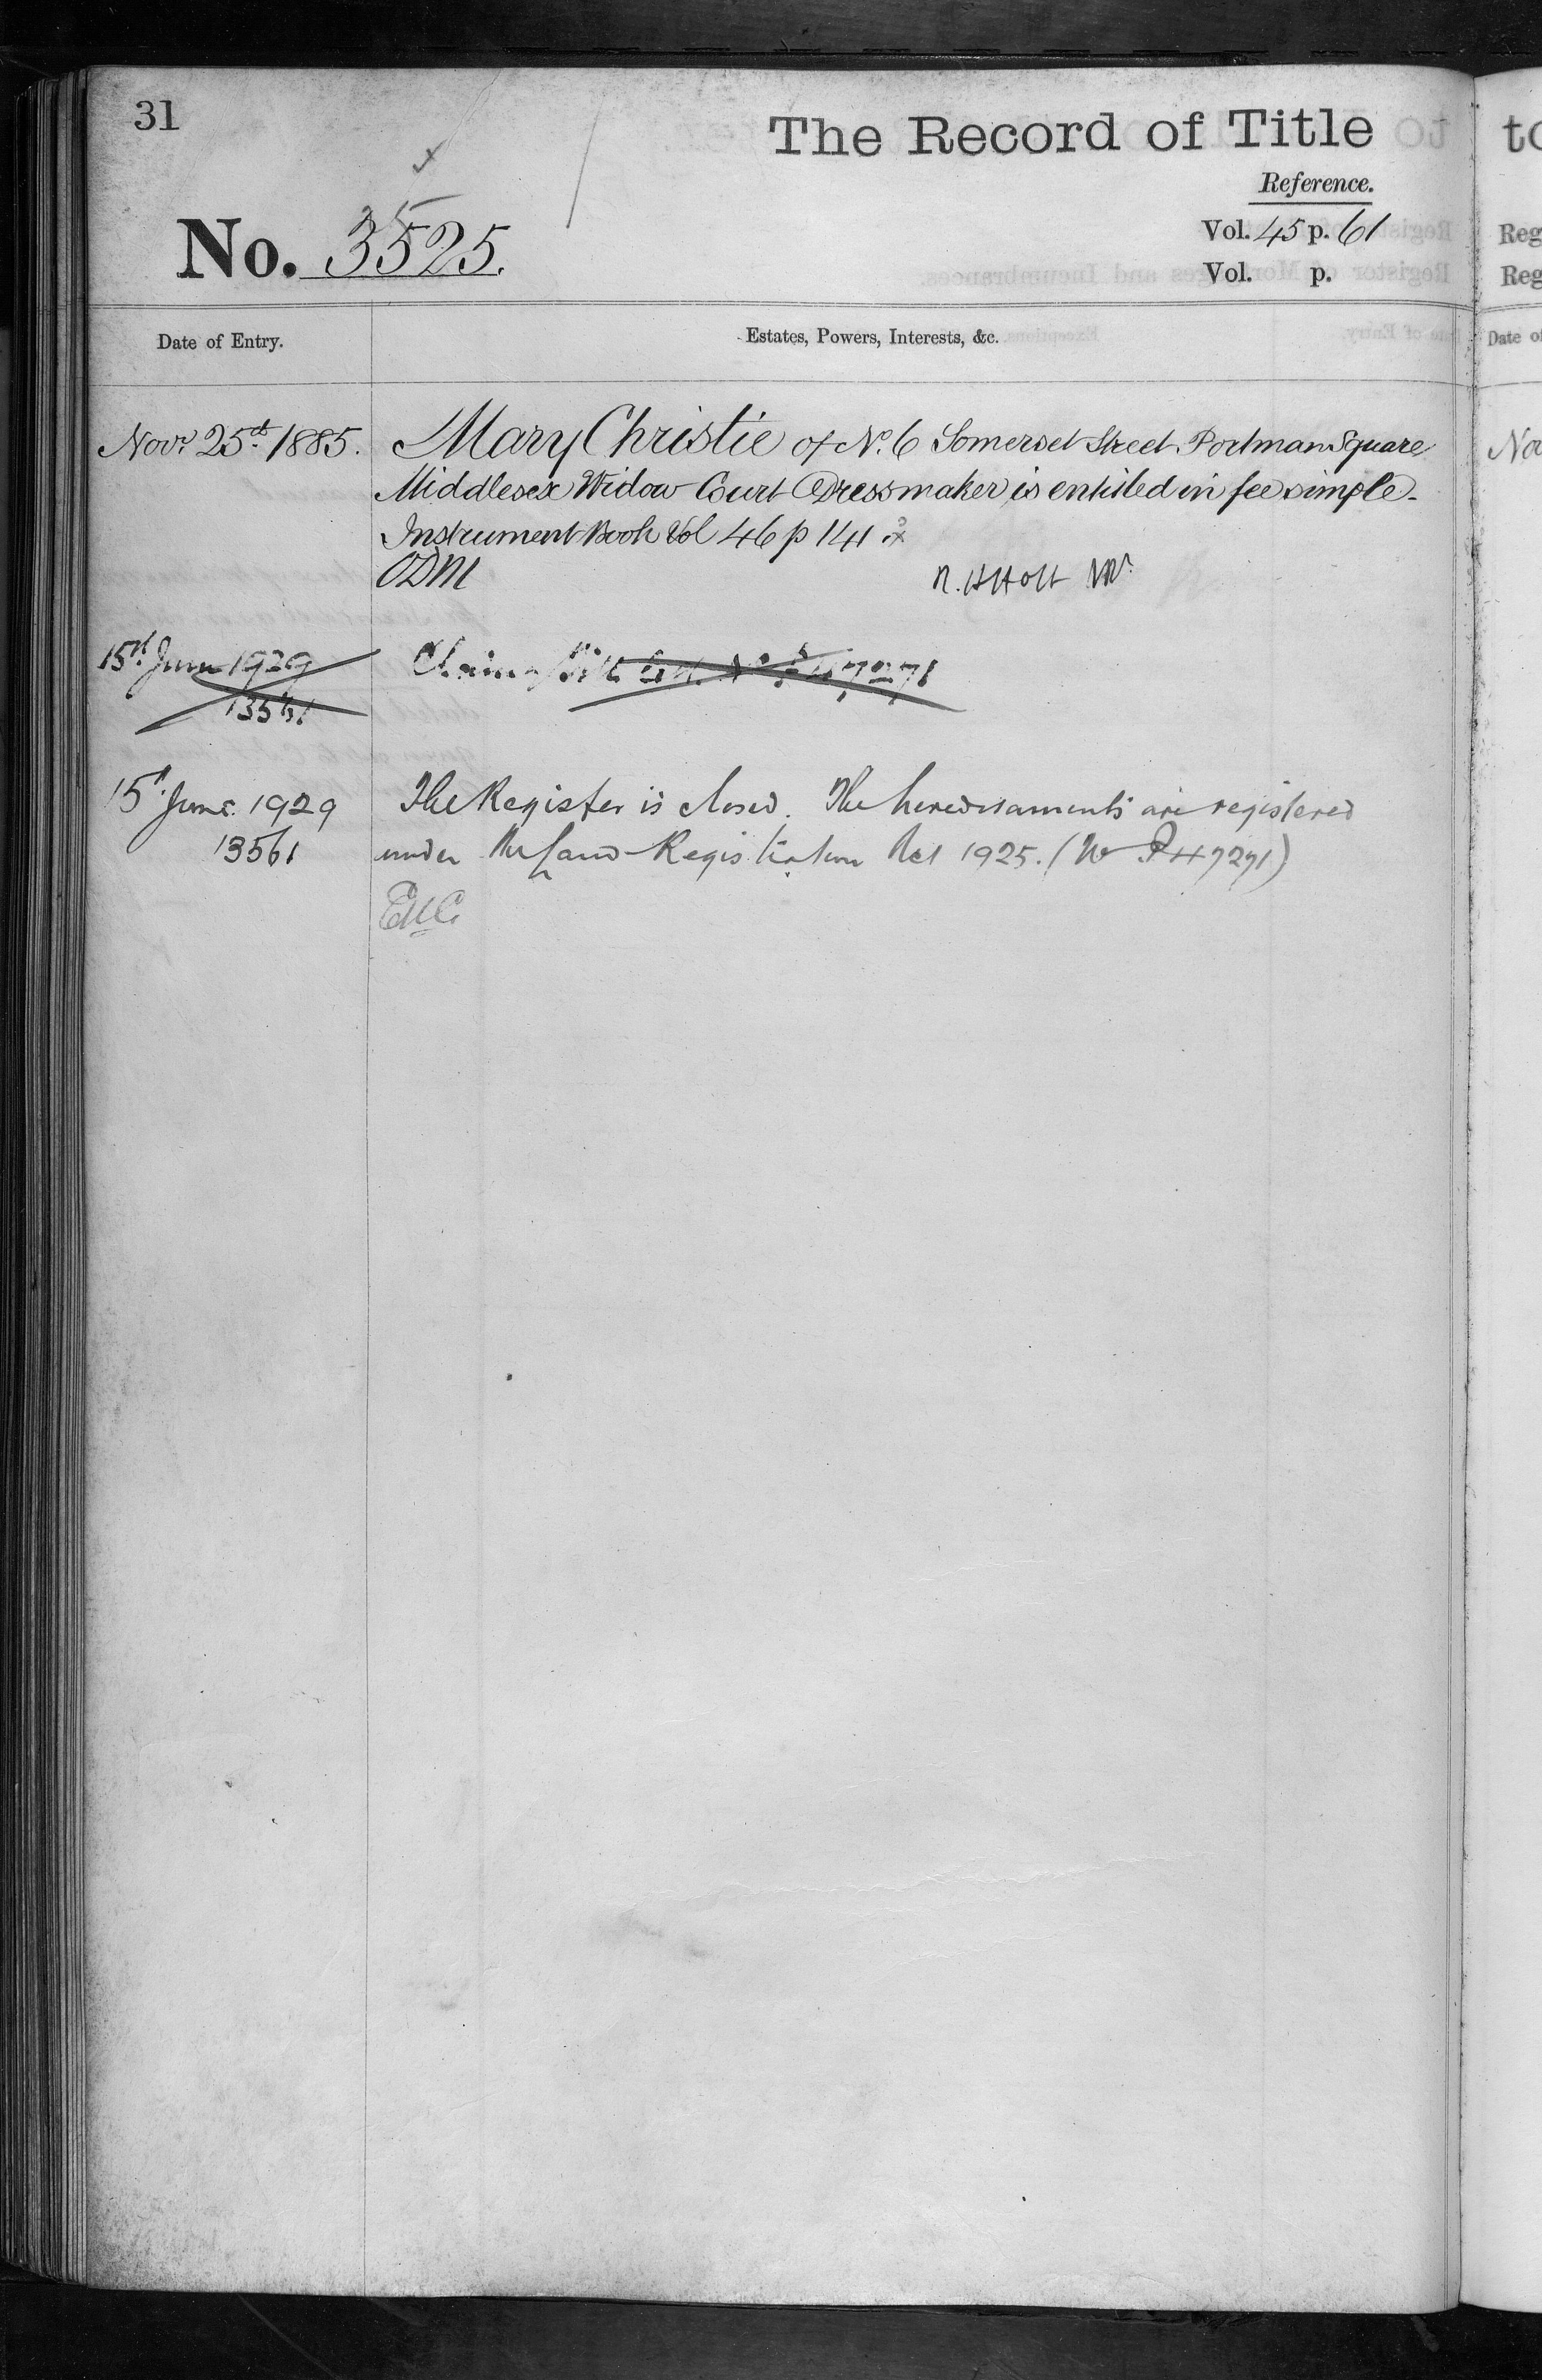 31
The Record of Title
Reference.
Vol. 45 p. 61
Vol. p.
No. 3525.
Date of Entry.
Estates, Powers, Interests, &c.
Novr 25th 1885.
Mary Christie of No. 6 Somerset Street Portman Square
Middlesex Widow Court Dressmaker is entitled in fee simple.
Instrument Book Vol 46 p 141
ODM
R. H Holt
15th June 1929
13561
No P 47271
15th June 1929
13561
The Register is closed. The hereditaments are registered
under the Land Registration Act 1925. (No P 47271)
to
Reg
Reg
Date of
No